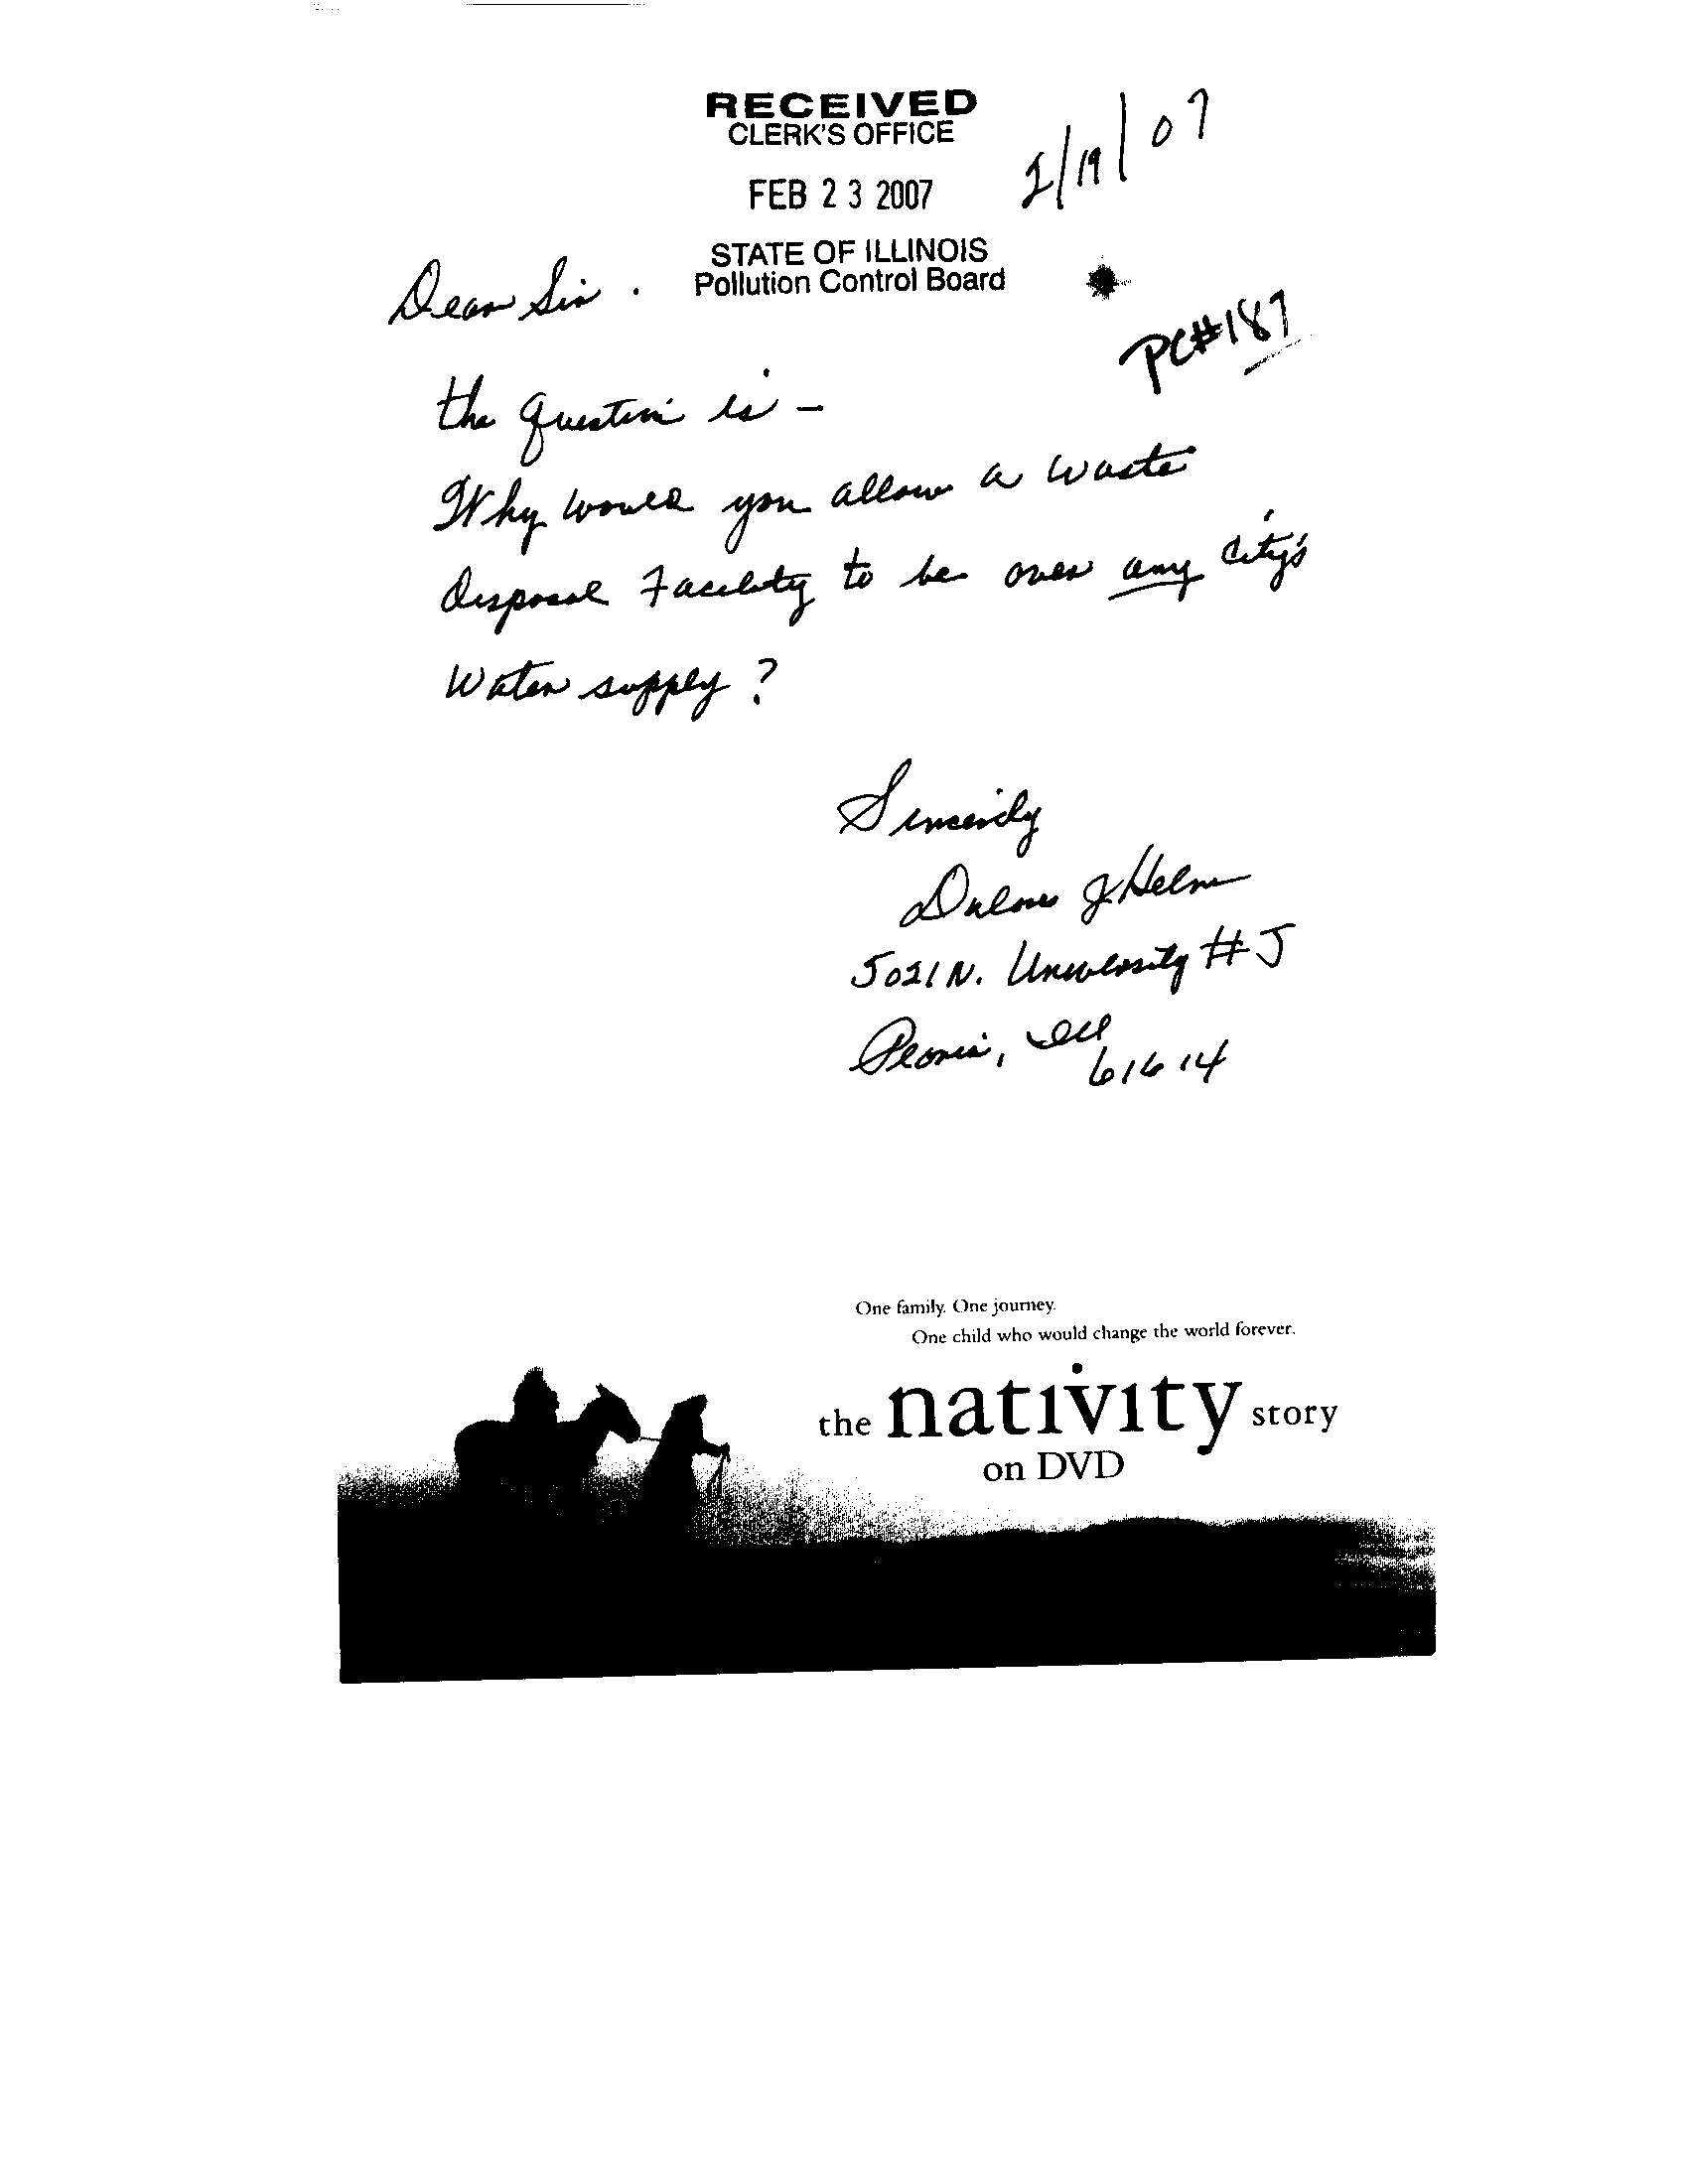 RECEIVED
CLERK'S OFFICE
FEB 23 2007
STATE OF ILLINOIS
Pollution Control Board
2/19/07
PC#187
Dear Sir.
the question is -
Why would you allow a waste
disposal Facility to be over any City's
Water supply?
Sincerely
Dolores J Helm
5021 N. University #J
Peoria, Ill
61614
One family. One journey.
One child who would change the world forever.
the nativity story
on DVD